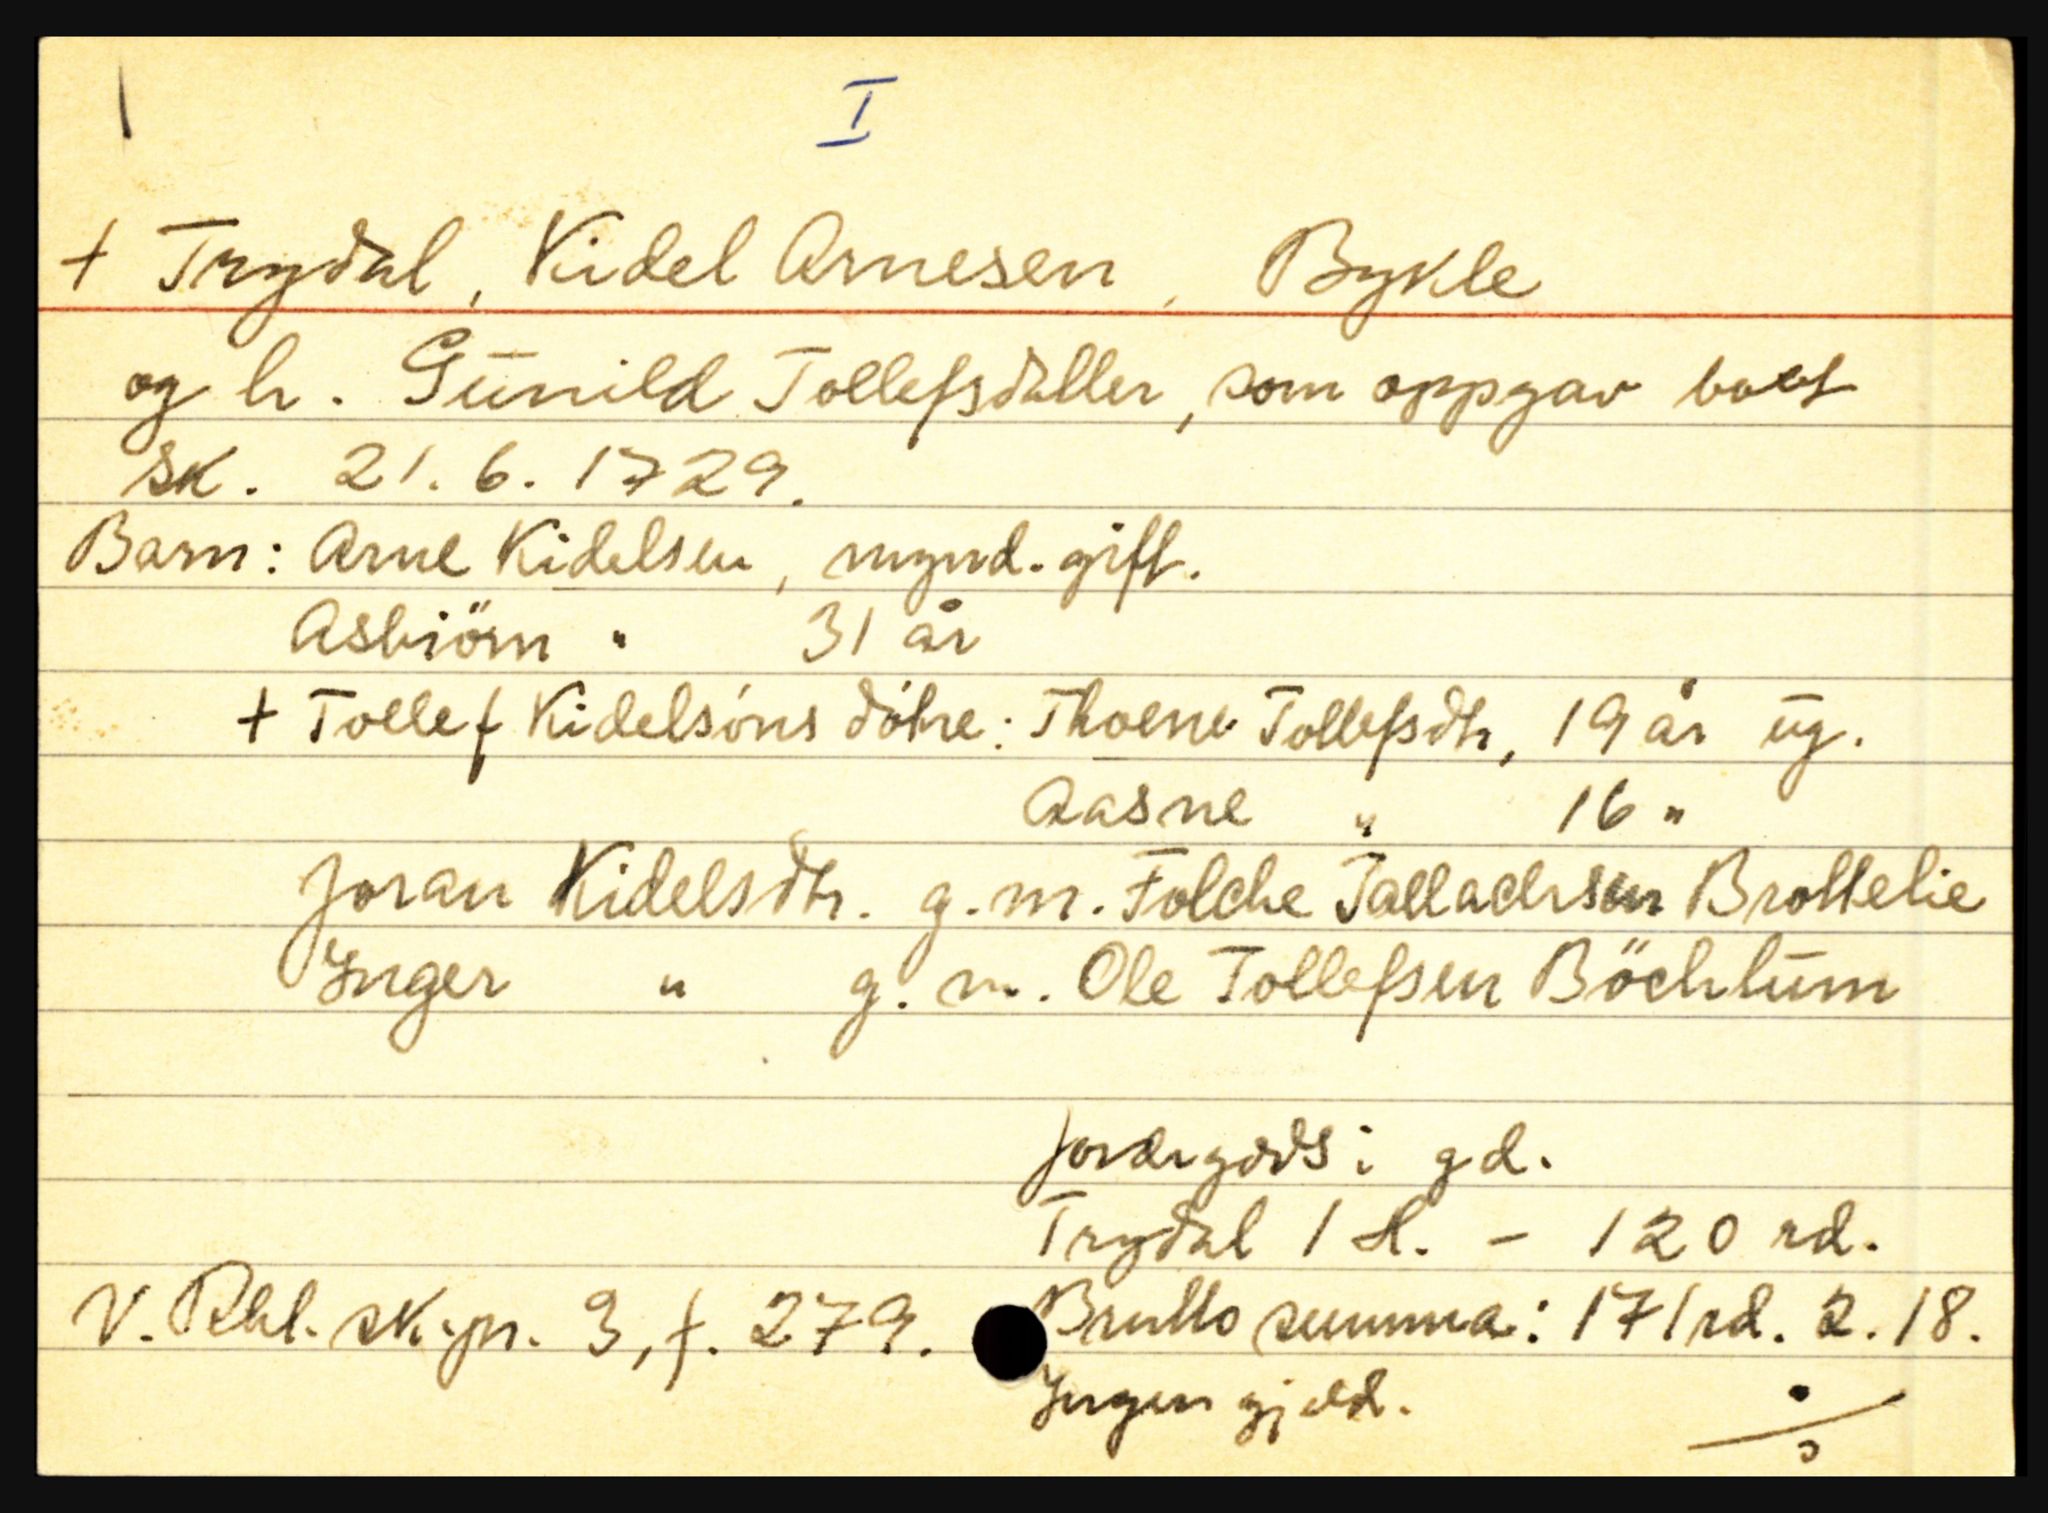 I
+ Trydal, Kidel Arnesen, Bykle
og h. Gunild Tollefsdatter, som oppgav boet
sk. 21.6.1729.
Barn: Arne Kidelsen, mynd. gift.
Asbiörn " 31 år
+ Tollef Kidelsöns döhre: Thorne Tollefsdtr, 19 år ug.
Aasne " 16 "
Joran Kidelsdtr. g.m. Folche Tallachsen Brottelie
Inger " g.m. Ole Tollefsen Böchlum
Jordegods i gd.
Trydal 1 H. - 120 rd.
V. Rbl. sk.pr. 3, f. 279. Brutto summa: 171 rd. 2. 18.
Ingen gjeld.